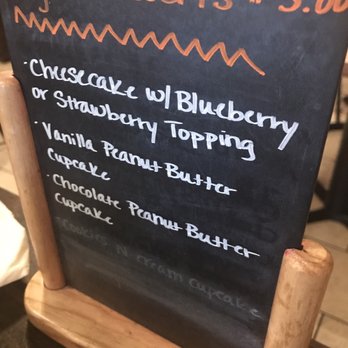 · Cheesecake w/ Blueberry
or Strawberry Topping
· Vanilla Peanut Butter
Cupcake
· Chocolate Peanut Butter
Cupcake
Cookies N Cream Cupcake